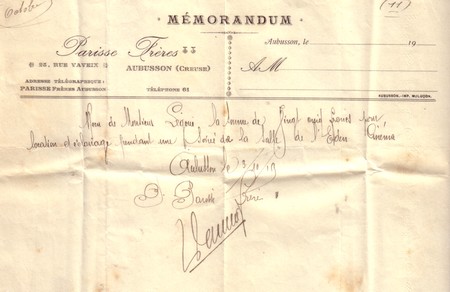 Octobre
(11)
MÉMORANDUM
Parisse Frères
25, RUE VAVEIX
AUBUSSON (CREUSE)
ADRESSE TÉLÉGRAPHIQUE :
PARISSE FRÈRES AUBUSSON
TÉLÉPHONE 61
Aubusson, le 19
A M
AUBUSSON.-IMP.
de Monsieur la somme de Vingt francs pour
location et éclairage pendant une Soirée de la Salle de l'Eden Cinéma
Aubusson le
P. Parisse Frères